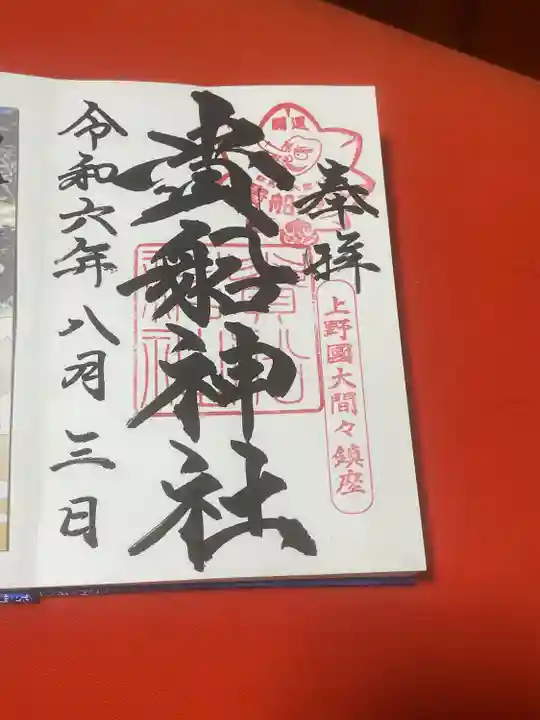 奉拝
開運
船
上野國大間々鎮座
貴船神社
令和六年八月三日